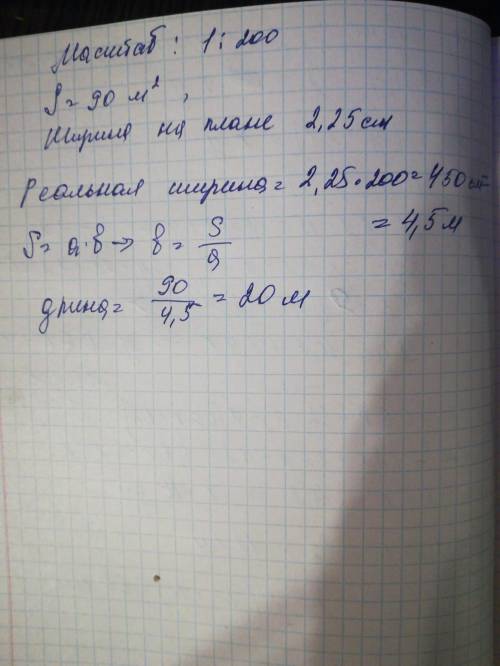 Масштаб: 1:200
S = 90 м²,
Ширина на плане 2,25 см
Реальная ширина = 2,25 · 200 = 450 см
= 4,5 м
S = a·b → b = S/a
длина = 90/4,5 = 20 м